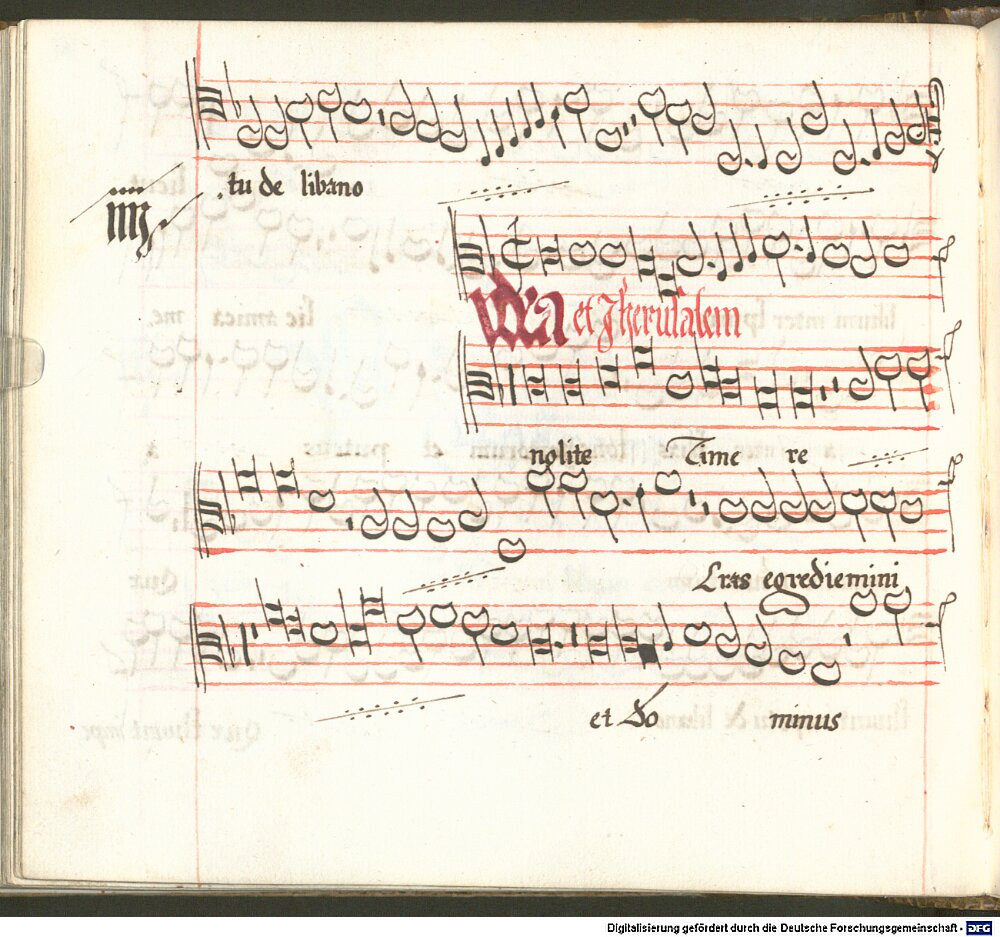 tu de libano
iiij
Iudea et Jherusalem
nolite Time re
Cras egrediemini
et do minus
Digitalisierung gefördert durch die Deutsche Forschungsgemeinschaft - DFG